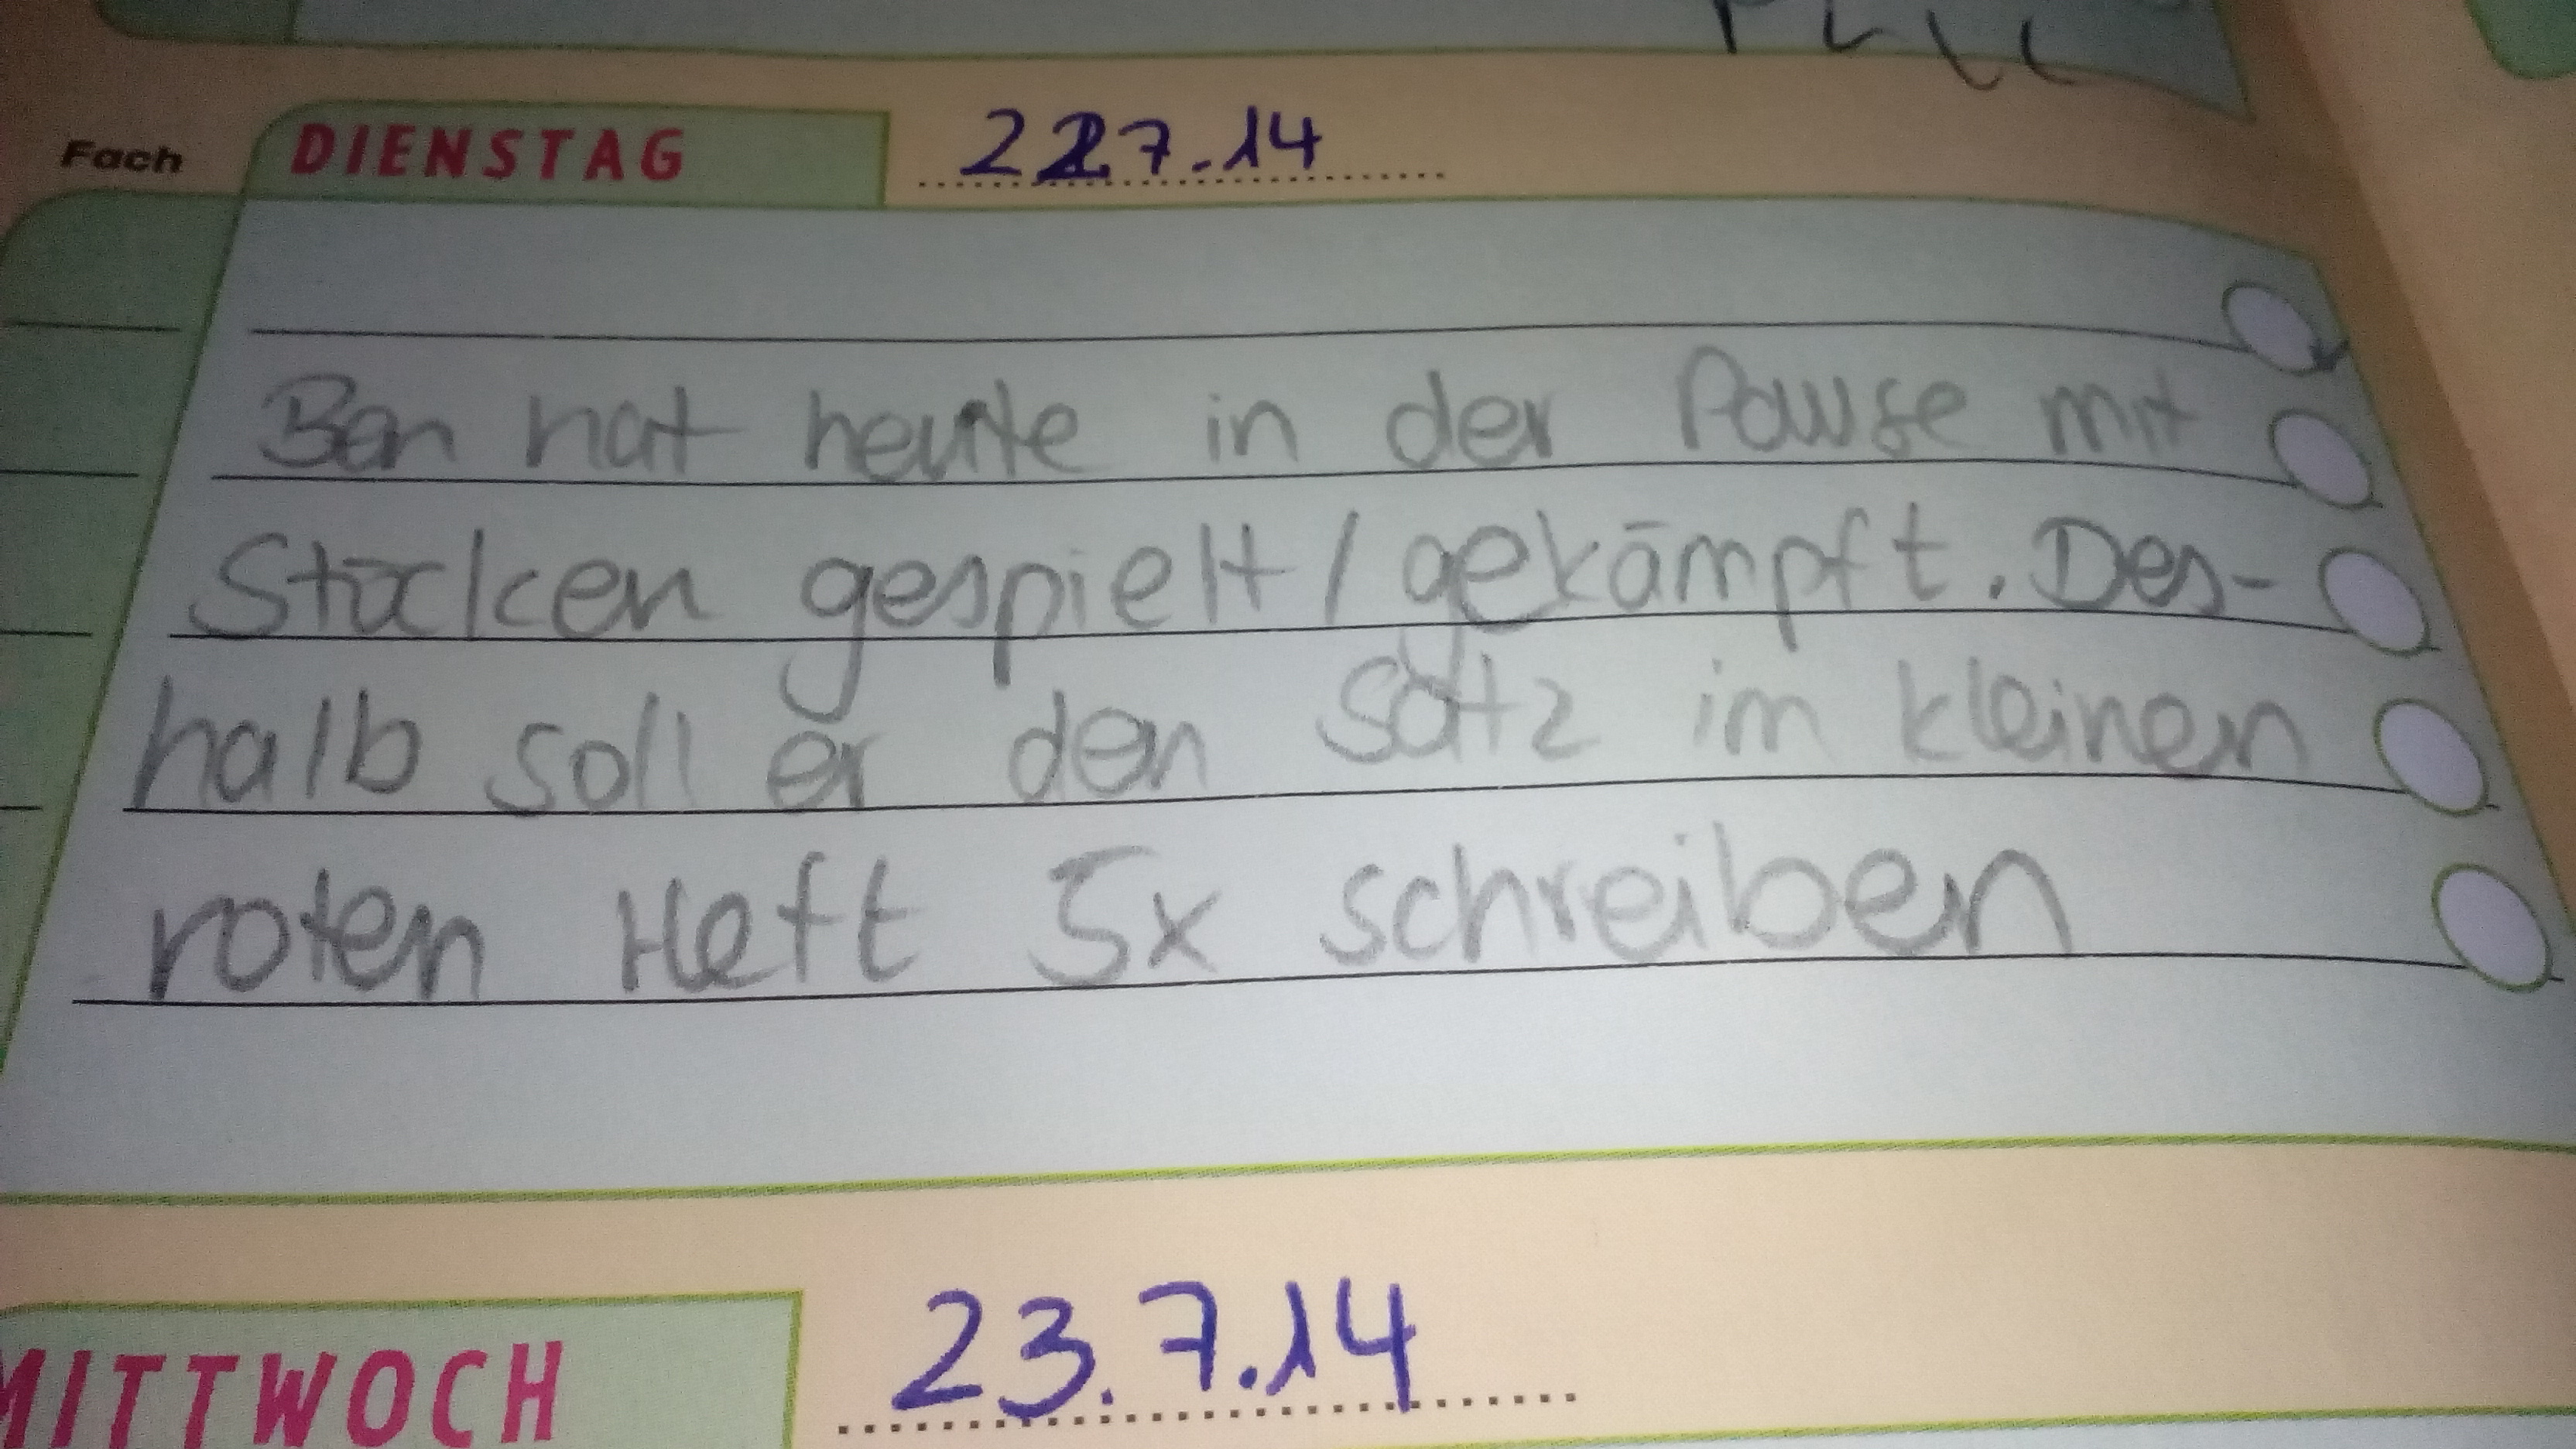 Fach DIENSTAG 22.7.14
Ben hat heute in der Pause mit
Stöcken gespielt/gekämpft. Des-
halb soll er den Satz im kleinen
roten Heft 5x schreiben
MITTWOCH 23.7.14